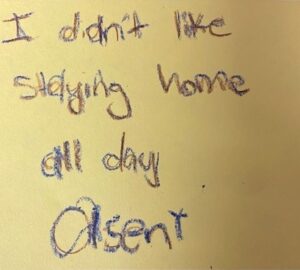 I didn't like
staying home
all day